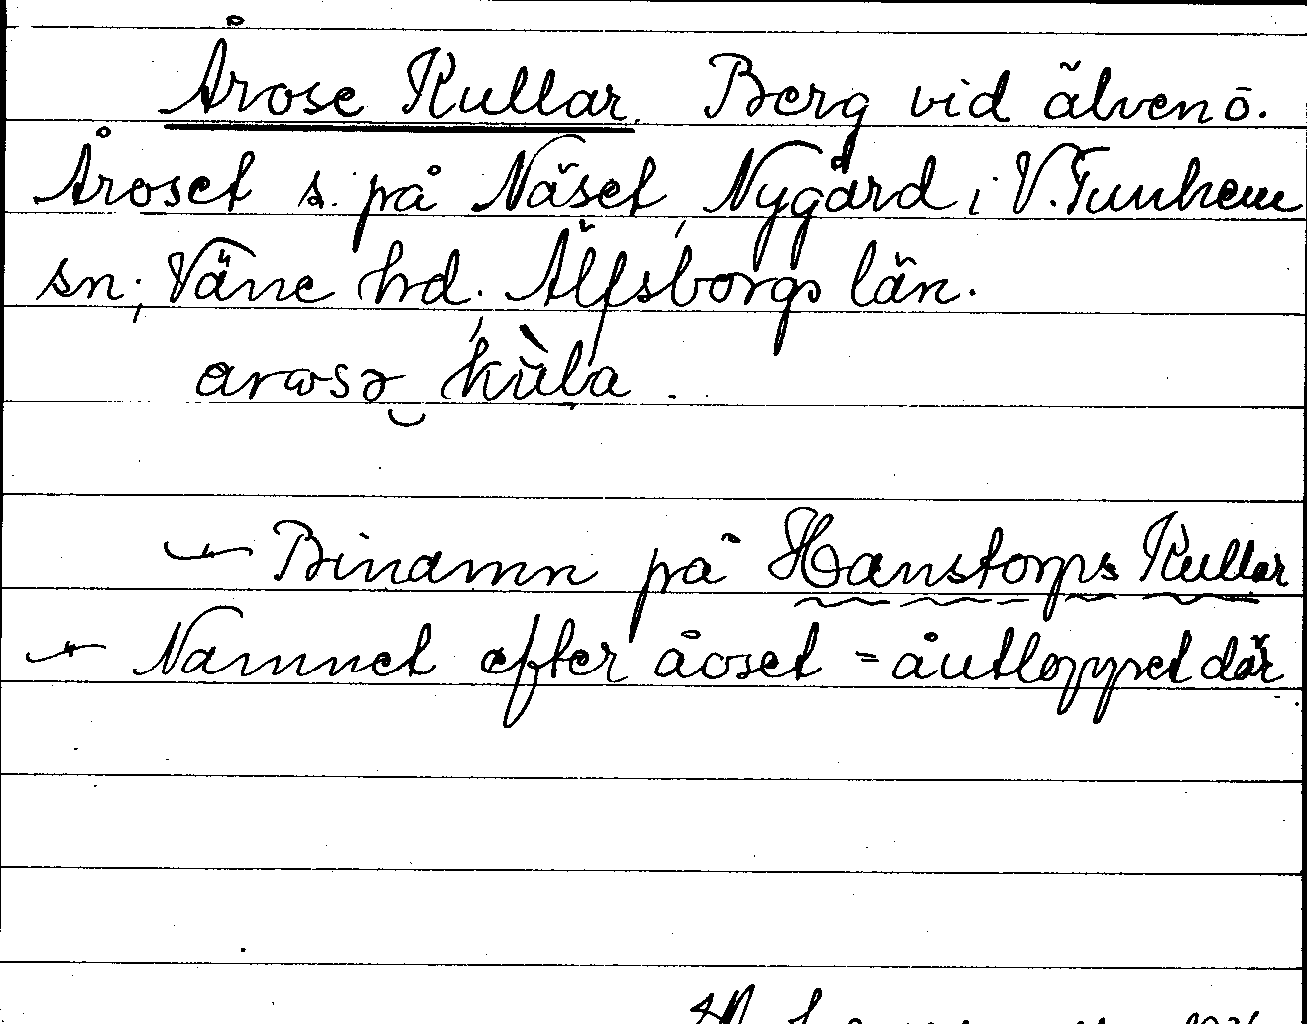 Årose Kullar. Berg vid älven ö.
Åroset s. på Näset, Nygård i V. Tunhem
sn; Väne hd. Älfsborgs län.
arɷsə kùla.
— Binamn på Hanstorps Kullar
— Namnet efter åoset = åutloppet där